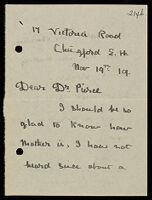 17 Victoria Road
Chingford E.4
Nov 19th 19.
Dear Dr Pierce
I should be so
glad to know how
Mother is, I have not
heard since about a